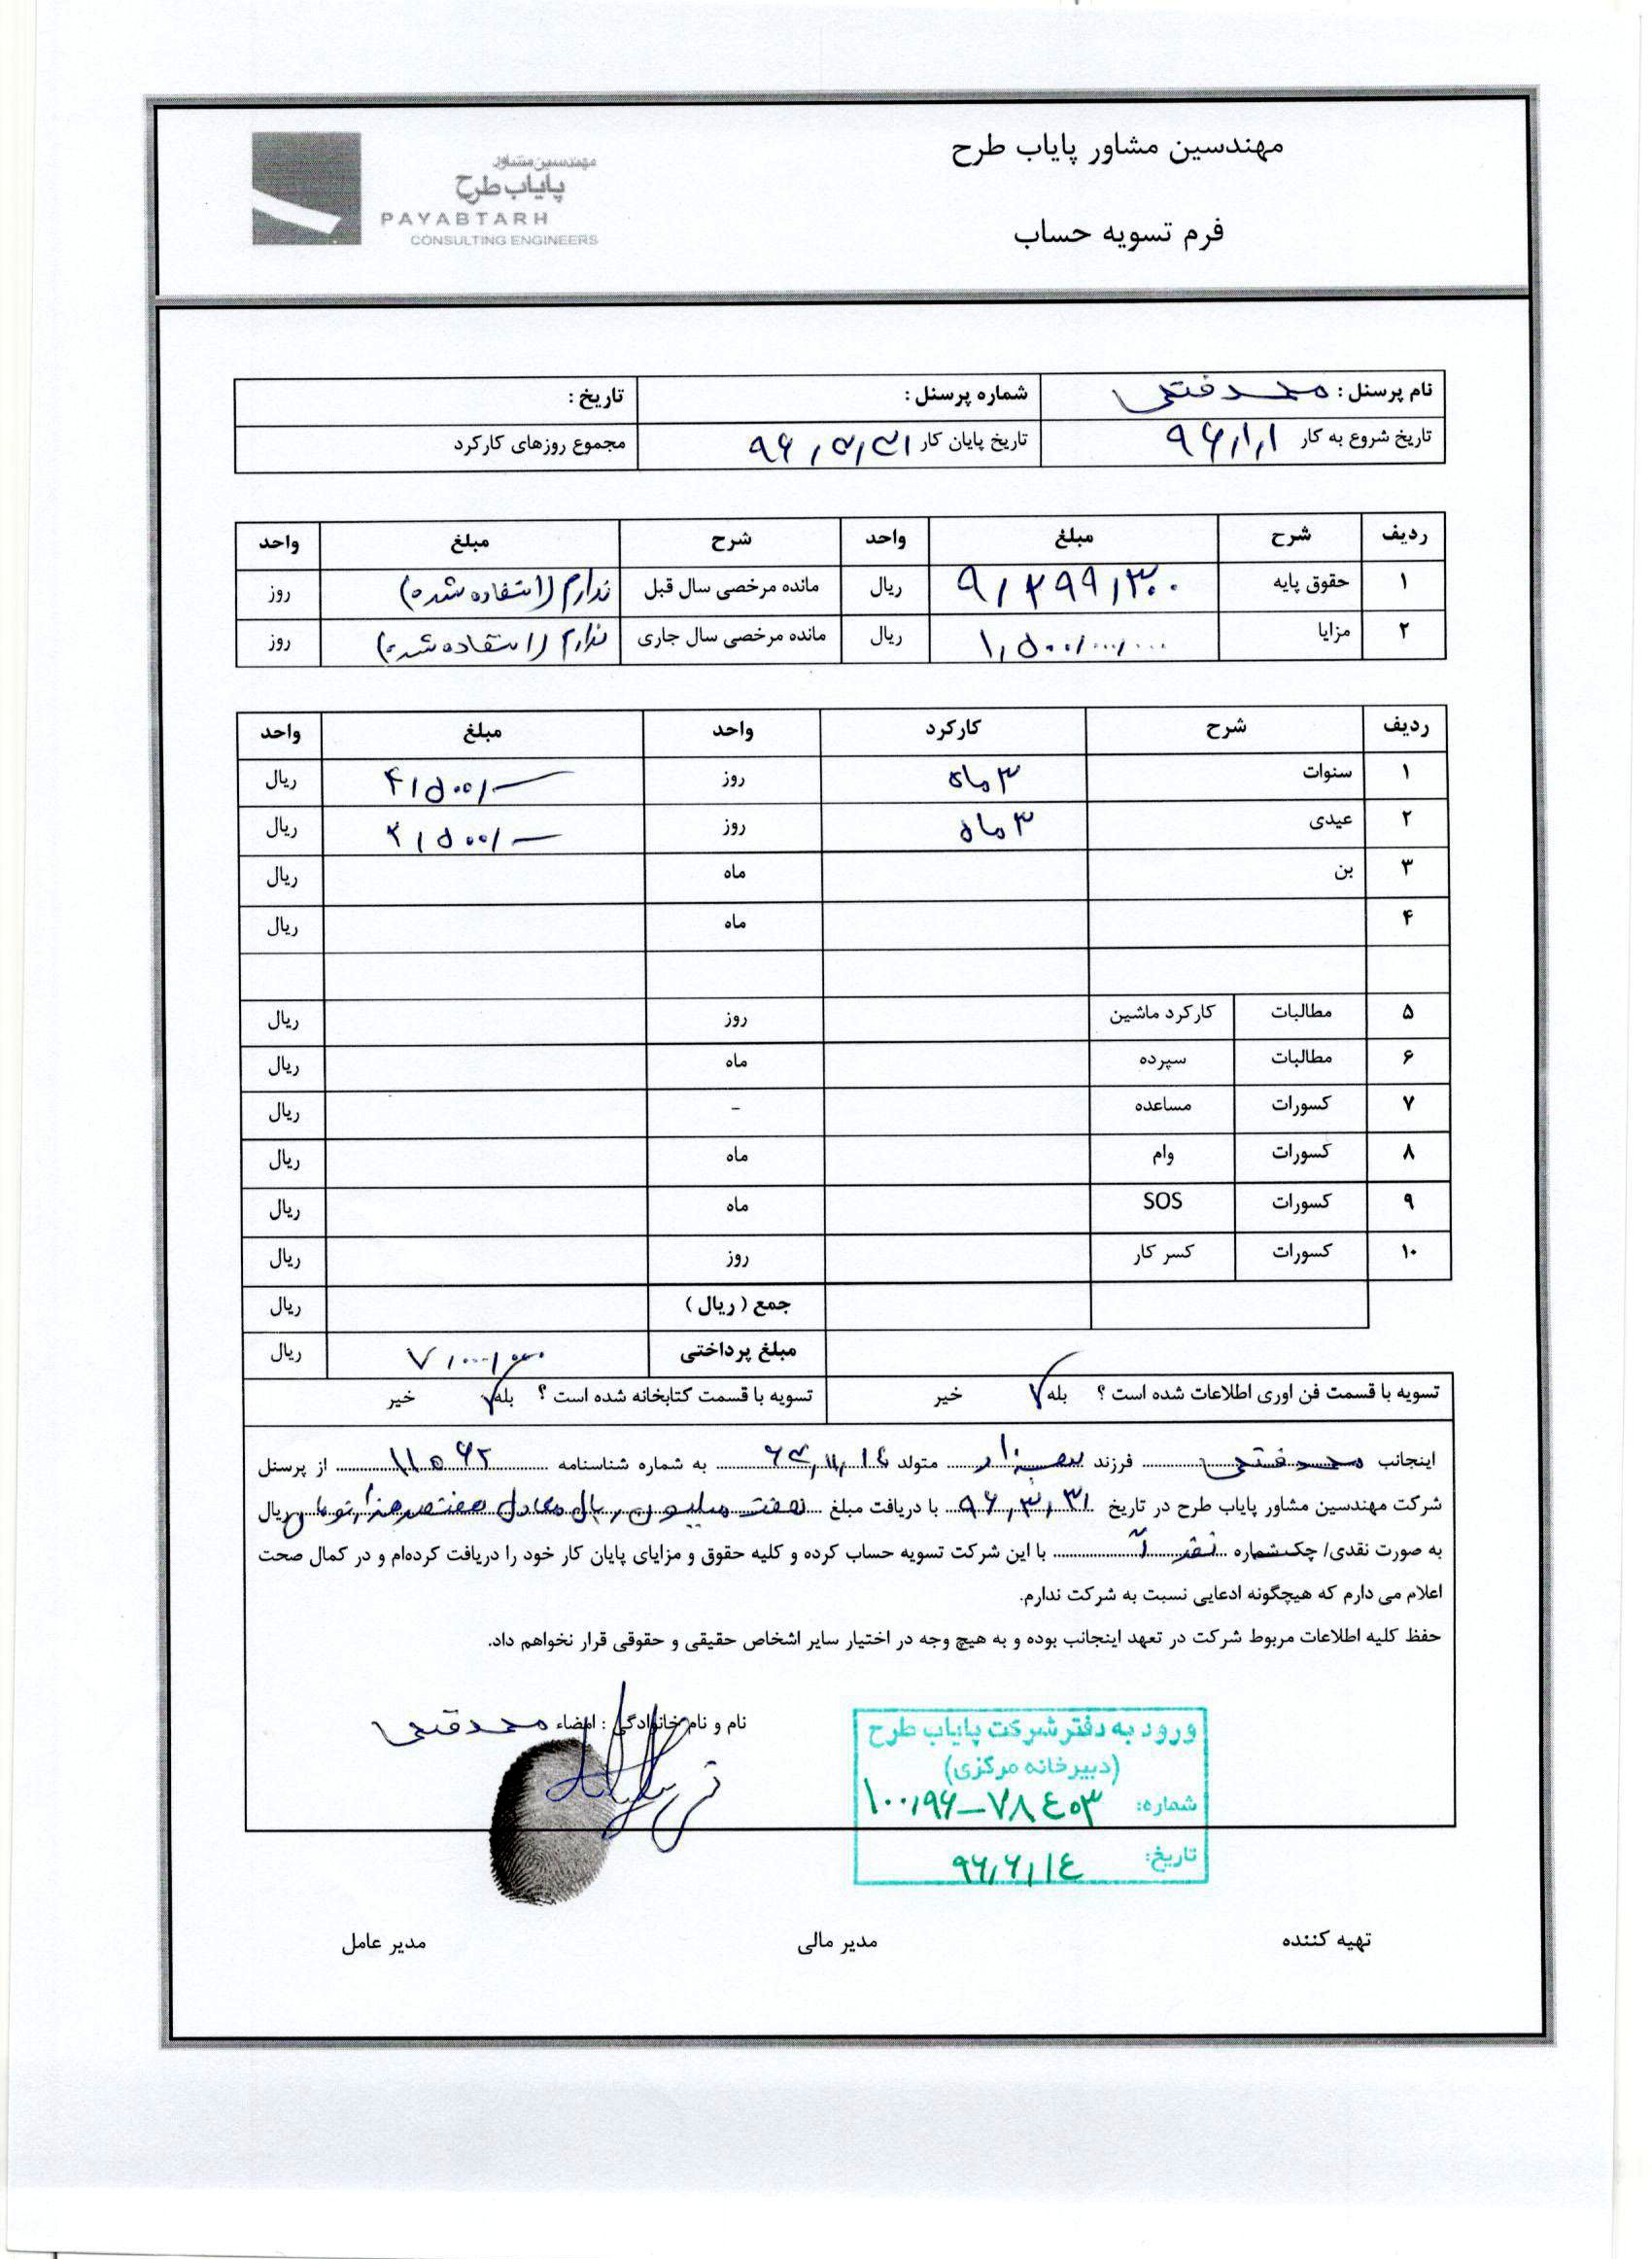 مهندسین مشاور پایاب طرح
مهندسین مشاور
پایاب طرح
PAYABTARH
CONSULTING ENGINEERS
فرم تسویه حساب
نام پرسنل : محمد فتحی شماره پرسنل : تاریخ :
تاریخ شروع به کار ۹۶/۱/۱ تاریخ پایان کار ۹۶/۳/۳۱ مجموع روزهای کارکرد
ردیف شرح مبلغ واحد شرح مبلغ واحد
۱ حقوق پایه ۹/۲۹۹/۳۰۰ ریال مانده مرخصی سال قبل ندارم (استفاده شده) روز
۲ مزایا ۱,۵۰۰/۰۰۰/۰۰۰ ریال مانده مرخصی سال جاری ندارم (استفاده شده) روز
ردیف شرح کارکرد واحد مبلغ واحد
۱ سنوات ۳ ماه روز ۴/۵۰۰/— ریال
۲ عیدی ۳ ماه روز ۲/۵۰۰/— ریال
۳ بن ماه ریال
۴ ماه ریال
۵ مطالبات کارکرد ماشین روز ریال
۶ مطالبات سپرده ماه ریال
۷ کسورات مساعده - ریال
۸ کسورات وام ماه ریال
۹ کسورات SOS ماه ریال
۱۰ کسورات کسر کار روز ریال
جمع ( ریال ) ریال
مبلغ پرداختی ۷/۰۰۰/۰۰۰ ریال
تسویه با قسمت فن اوری اطلاعات شده است ؟ بله ✓ خیر تسویه با قسمت کتابخانه شده است ؟ بله ✓ خیر
اینجانب محمد فتحی فرزند متولد ۶۳/۱۱/۱۴ به شماره شناسنامه ۱۱۵۶۲ از پرسنل
شرکت مهندسین مشاور پایاب طرح در تاریخ ۹۶/۳/۳۱ با دریافت مبلغ هفت میلیون ریال معادل هفتصد هزار تومان ریال
به صورت نقدی/ چک شماره نقداً با این شرکت تسویه حساب کرده و کلیه حقوق و مزایای پایان کار خود را دریافت کرده‌ام و در کمال صحت
اعلام می دارم که هیچگونه ادعایی نسبت به شرکت ندارم.
حفظ کلیه اطلاعات مربوط شرکت در تعهد اینجانب بوده و به هیچ وجه در اختیار سایر اشخاص حقیقی و حقوقی قرار نخواهم داد.
نام و نام خانوادگی : امضاء محمد فتحی
ورود به دفتر شرکت پایاب طرح
(دبیرخانه مرکزی)
شماره: ۱۰۰/۹۶-۷۸۴۰۳
تاریخ: ۹۶/۶/۱۴
تهیه کننده مدیر مالی مدیر عامل